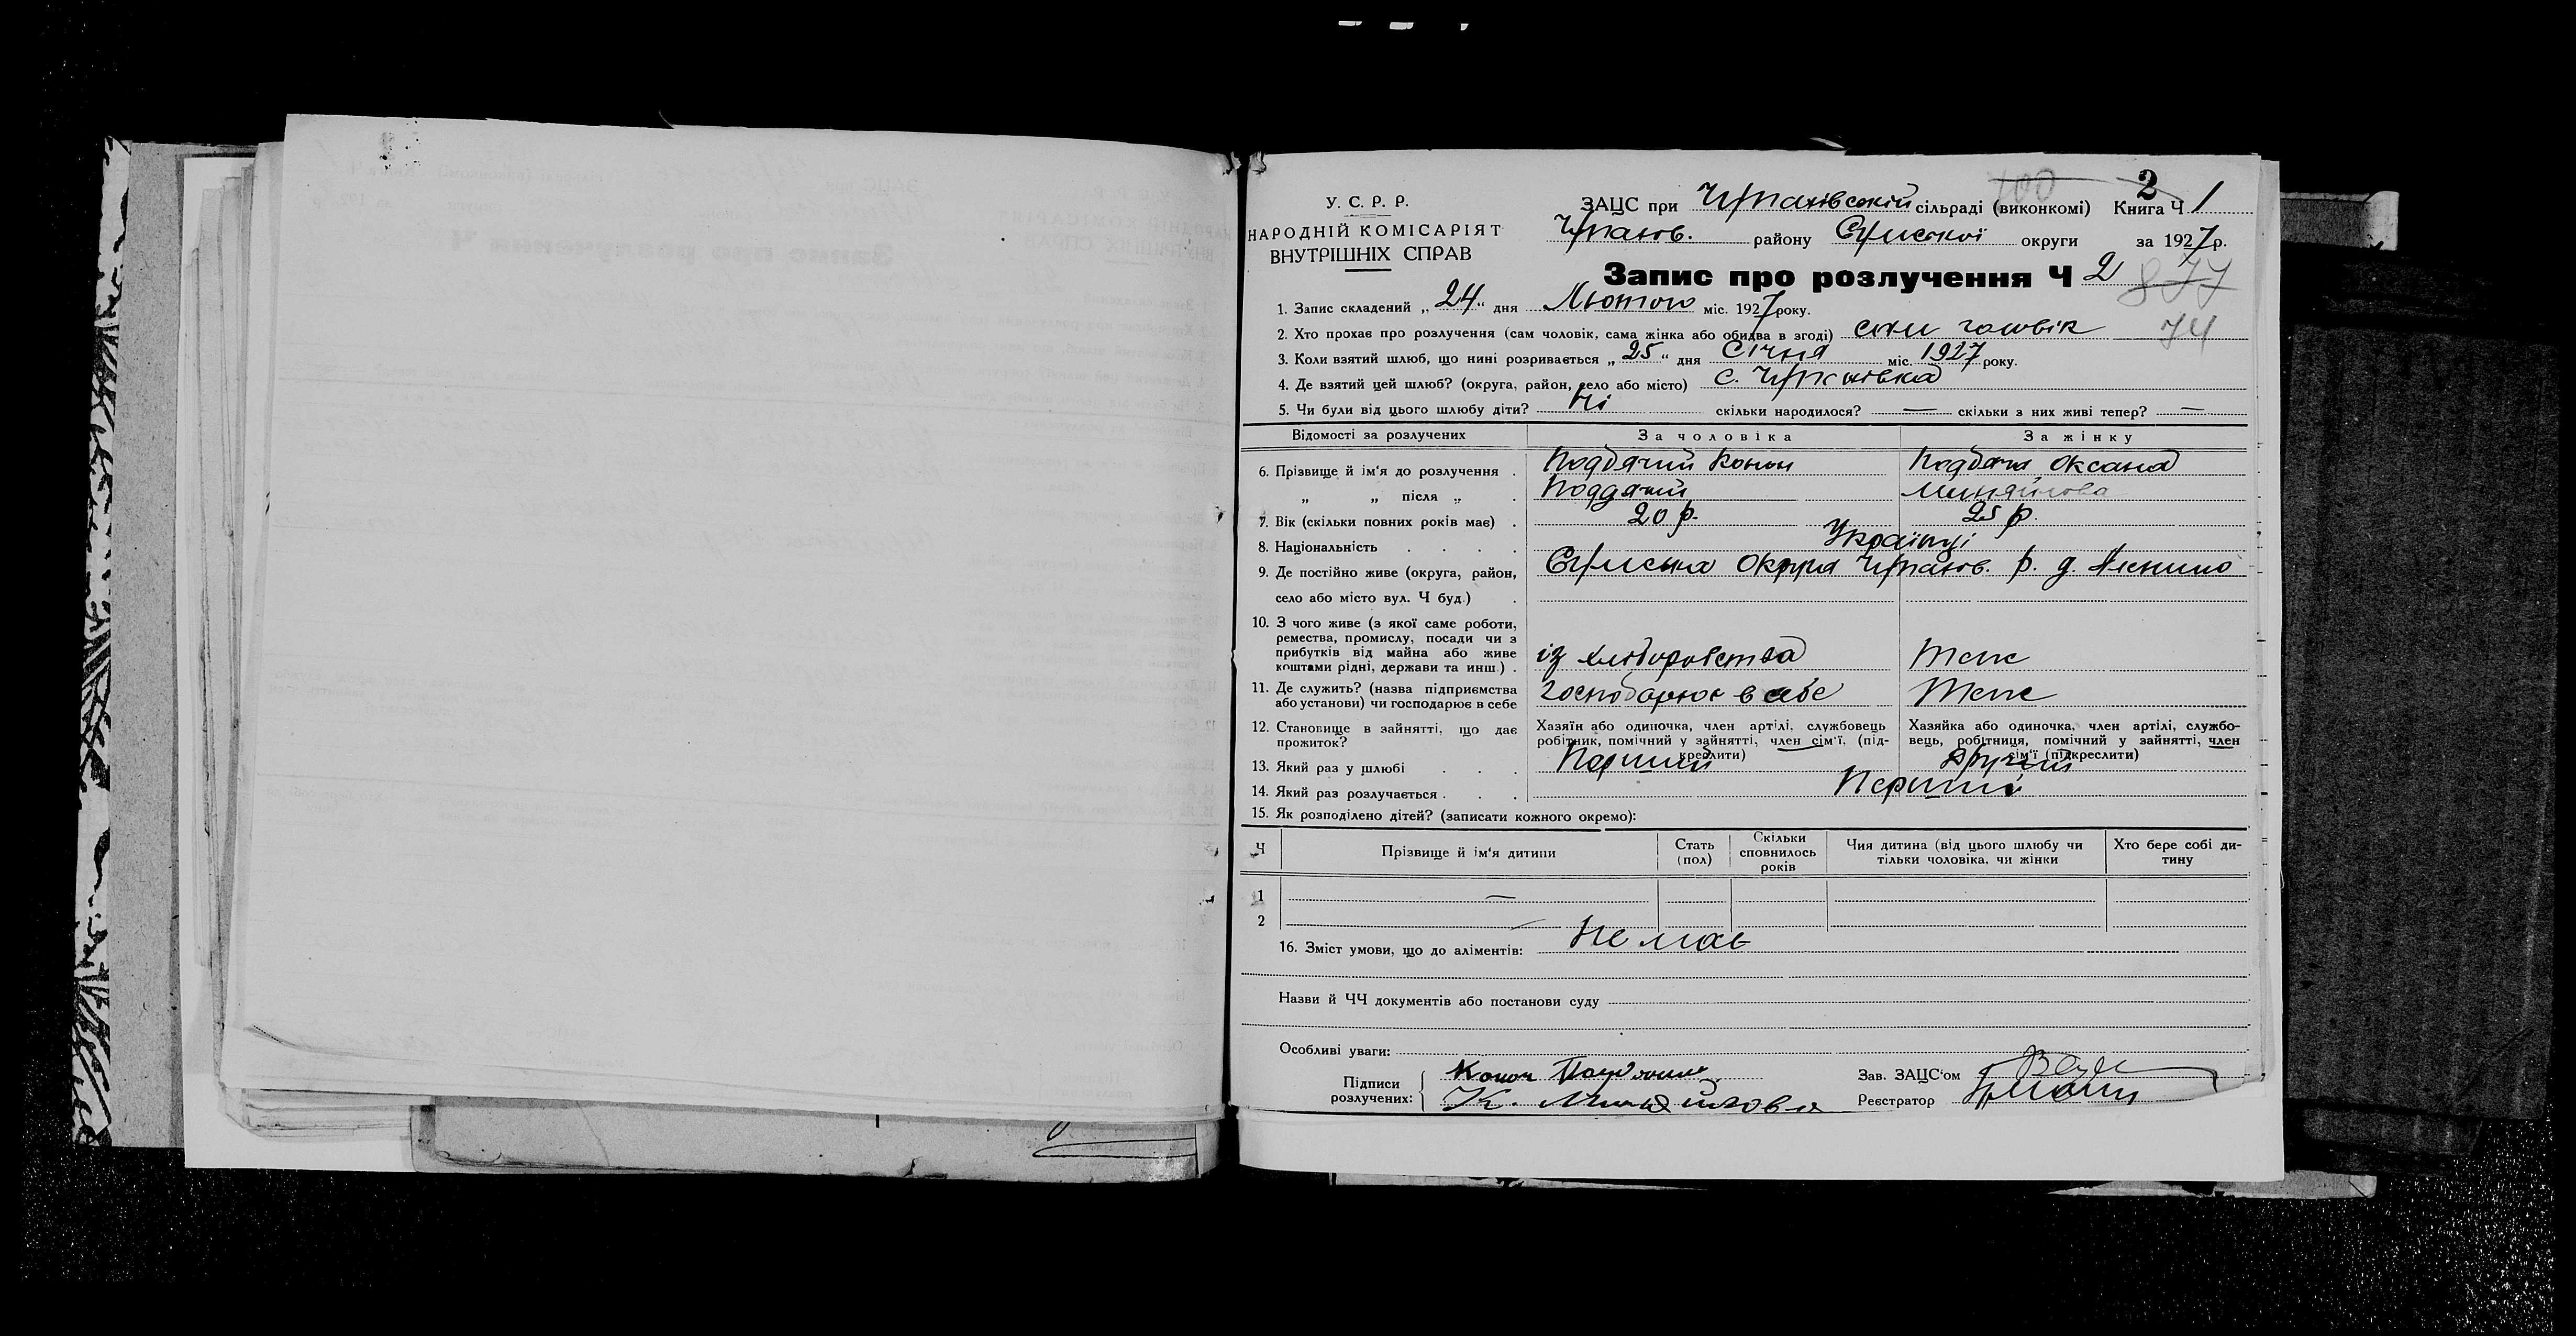 100
У. С. Р. Р.
НАРОДНІЙ КОМІСАРІЯТ
ВНУТРІШНІХ СПРАВ
ЗАЦС при сільраді (виконкомі) Книга Ч 2 1
району Сумської округи за 1927 р.
Запис про розлучення Ч 2 877
74
1. Запис складений „ 24 “ дня Лютого міс. 1927 року.
2. Хто прохає про розлучення (сам чоловік, сама жінка або обидва в згоді) сам чоловік
3. Коли взятий шлюб, що нині розривається „ 25 “ дня Січня міс. 1927 року.
4. Де взятий цей шлюб? (округа, район, село або місто) с.
5. Чи були від цього шлюбу діти? Ні скільки народилося? — скільки з них живі тепер? —
Відомості за розлучених За чоловіка За жінку
6. Прізвище й ім'я до розлучення . Конон Оксана
„ „ після „ . Миняйлова
7. Вік (скільки повних років має) . 20 р. 25 р.
8. Національність . . . . Українці
9. Де постійно живе (округа, район, Сумська Округа р.
село або місто вул. Ч буд.) .
10. З чого живе (з якої саме роботи,
ремества, промислу, посади чи з
прибутків від майна або живе
коштами рідні, держави та инш.) . із хліборобства Теж
11. Де служить? (назва підприємства
або установи) чи господарює в себе господарює в себе Теж
12. Становище в зайнятті, що дає
прожиток?
Хазяїн або одиночка, член артілі, службовець
робітник, помічний у зайнятті, член сім'ї, (під-
креслити)
Хазяйка або одиночка, член артілі, службо-
вець, робітниця, помічний у зайнятті, член
сім'ї (підкреслити)
13. Який раз у шлюбі . . . Перший другий
14. Який раз розлучається . . . Перший
15. Як розподілено дітей? (записати кожного окремо):
Ч Прізвище й ім'я дитини Стать (пол) Скільки сповнилось років Чия дитина (від цього шлюбу чи тільки чоловіка, чи жінки Хто бере собі ди- тину
1 —
2
16. Зміст умови, що до аліментів: Не має
Назви й ЧЧ документів або постанови суду
Особливі уваги:
Підписи
розлучених: Конон
К. Миняйлова
Зав. ЗАЦС'ом
Реєстратор